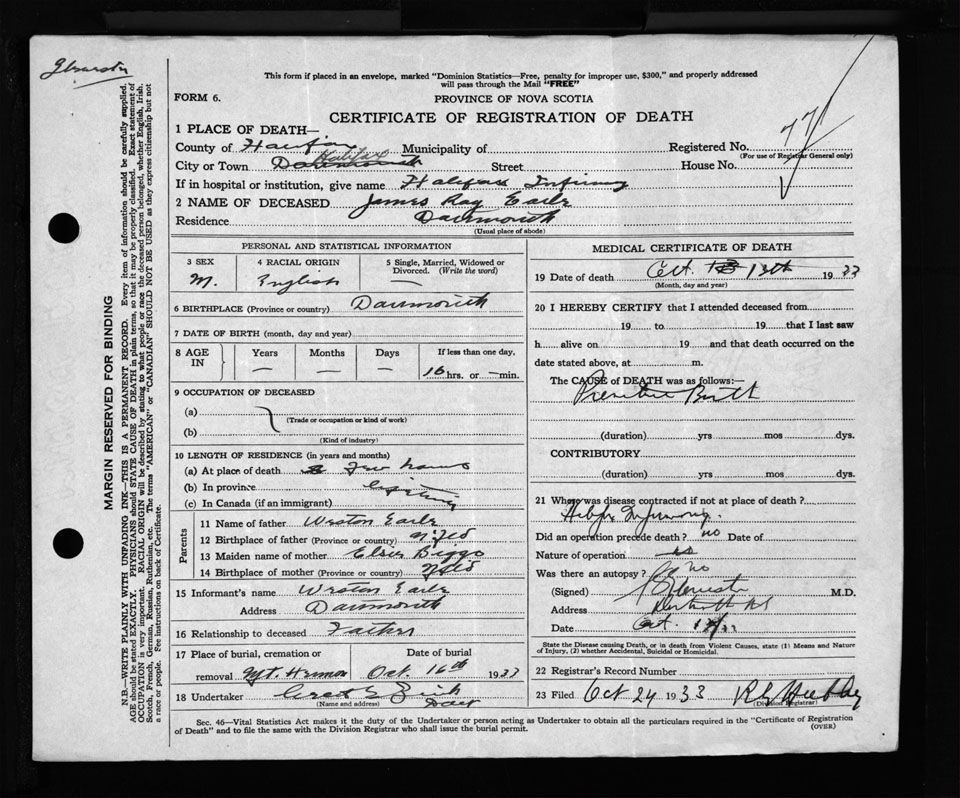 This form if placed in an envelope, marked "Dominion Statistics—Free, penalty for improper use, $300," and properly addressed
will pass through the Mail "FREE"
FORM 6.
PROVINCE OF NOVA SCOTIA
CERTIFICATE OF REGISTRATION OF DEATH
MARGIN RESERVED FOR BINDING
N.B.—WRITE PLAINLY WITH UNFADING INK—THIS IS A PERMANENT RECORD. Every item of information should be carefully supplied.
AGE should be stated EXACTLY. PHYSICIANS should STATE CAUSE OF DEATH in plain terms, so that it may be properly classified. Exact statement of
OCCUPATION is very important. RACIAL ORIGIN will be described by stating to what people or race the deceased person belonged, whether English, Irish,
Scotch, French, German, Russian, Ruthenian, etc. The terms "AMERICAN" or "CANADIAN" SHOULD NOT BE USED as they express citizenship but not
a race or people. See instructions on back of Certificate.
1 PLACE OF DEATH—
County of Halifax Municipality of
Registered No. 771
(For use of Registrar General only)
City or Town Dartmouth Halifax Street House No.
If in hospital or institution, give name Halifax Infirmary
2 NAME OF DECEASED James Ray Earle
Residence Dartmouth
(Usual place of abode)
PERSONAL AND STATISTICAL INFORMATION
3 SEX
M.
4 RACIAL ORIGIN
English
5 Single, Married, Widowed or
Divorced. (Write the word)
—
6 BIRTHPLACE (Province or country) Dartmouth
7 DATE OF BIRTH (month, day and year)
8 AGE IN
Years Months Days If less than one day,
— — — 16 hrs. or — min.
9 OCCUPATION OF DECEASED
(a)
(Trade or occupation or kind of work)
(b)
(Kind of industry)
10 LENGTH OF RESIDENCE (in years and months)
(a) At place of death few hours
(b) In province lifetime
(c) In Canada (if an immigrant)
Parents
11 Name of father Weston Earle
12 Birthplace of father (Province or country) Nfld
13 Maiden name of mother Elsie Biggs
14 Birthplace of mother (Province or country) Nfld
15 Informant's name Weston Earle
Address Dartmouth
16 Relationship to deceased Father
17 Place of burial, cremation or Date of burial
removal Mt. Hermon Oct. 16th 1933
18 Undertaker
(Name and address)
MEDICAL CERTIFICATE OF DEATH
19 Date of death Oct. 13th 1933
(Month, day and year)
20 I HEREBY CERTIFY that I attended deceased from
19 to 19 that I last saw
h alive on 19 and that death occurred on the
date stated above, at m.
The CAUSE of DEATH was as follows:—
Premature Birth
(duration) yrs mos dys.
CONTRIBUTORY
(duration) yrs mos dys.
21 Where was disease contracted if not at place of death?
Did an operation precede death? no Date of
Nature of operation
Was there an autopsy? no
(Signed) M.D.
Address Dartmouth NS
Date Oct.
State the Disease causing Death, or in death from Violent Causes, state (1) Means and Nature
of Injury, (2) whether Accidental, Suicidal or Homicidal.
22 Registrar's Record Number
23 Filed Oct 24 1933
(Division Registrar)
Sec. 46—Vital Statistics Act makes it the duty of the Undertaker or person acting as Undertaker to obtain all the particulars required in the "Certificate of Registration
of Death" and to file the same with the Division Registrar who shall issue the burial permit.
(OVER)